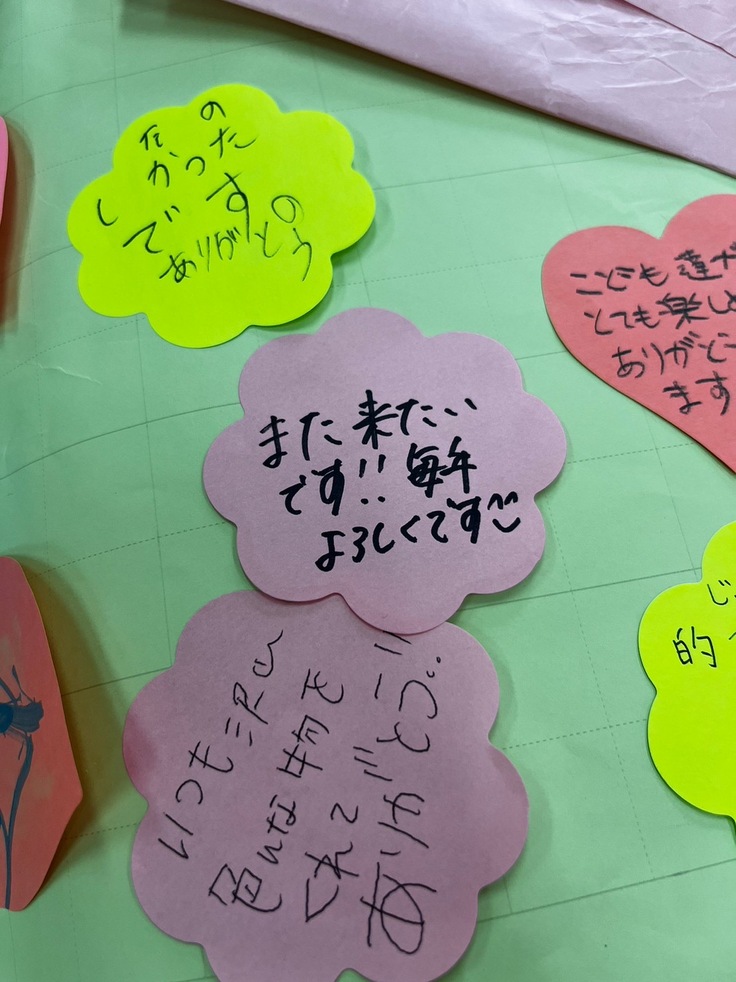 の
かった
し
です
ありがとう
また来たい
です!! 毎年
よろしくです
こども達が
とても楽し
ありがとう
ます
いつも沢山
色んな物を
くれて
ありがとう!!
じ
的